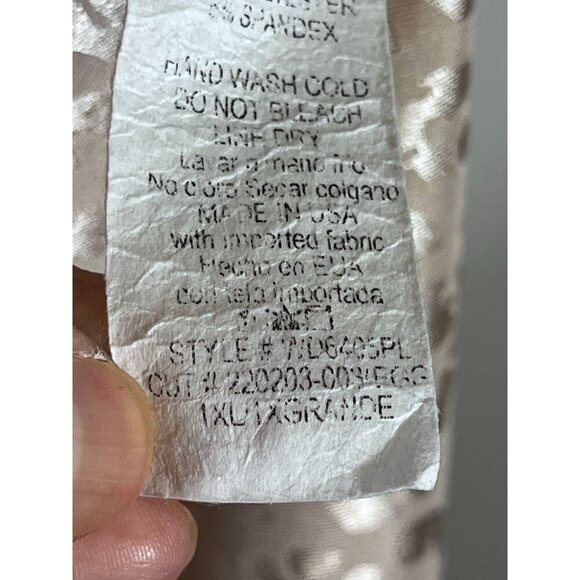 SPANDEX
HAND WASH COLD
DO NOT BLEACH
LINE DRY
Lavar a mano frio
No cloro Secar colgano
MADE IN USA
with imported fabric
Hecho en EUA
con tela importada
STYLE # WD6405PL
CUT # 220203-003/EGG
1XL/1XGRANDE